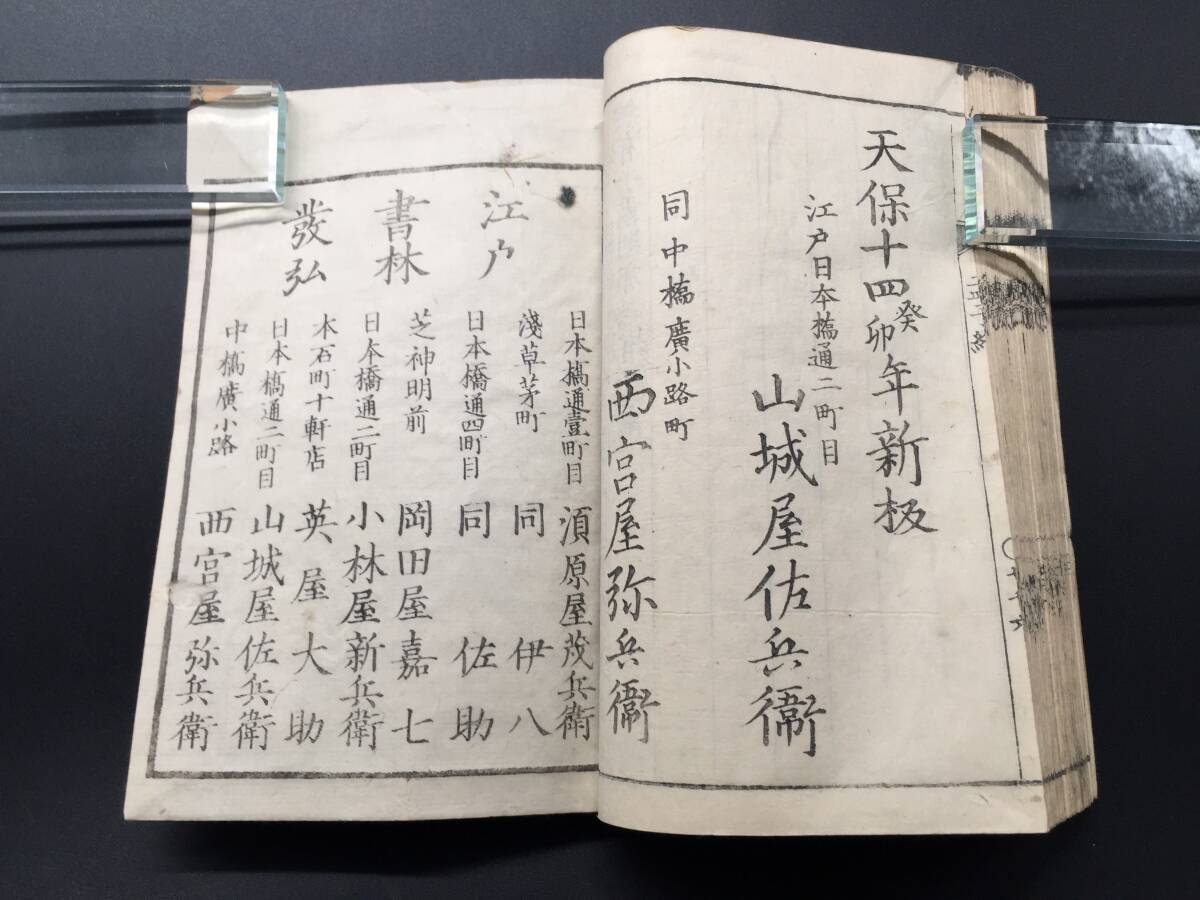 天保十四癸卯年新板
江戸日本橋通二町目
山城屋佐兵衞
同中橋廣小路町
西宮屋弥兵衞
江戸
書林
發弘
日本橋通壹町目 須原屋茂兵衛
淺草茅町 同 伊八
日本橋通四町目 同 佐助
芝神明前 岡田屋嘉七
日本橋通二町目 小林屋新兵衛
本石町十軒店 英屋大助
日本橋通二町目 山城屋佐兵衛
中橋廣小路 西宮屋弥兵衛